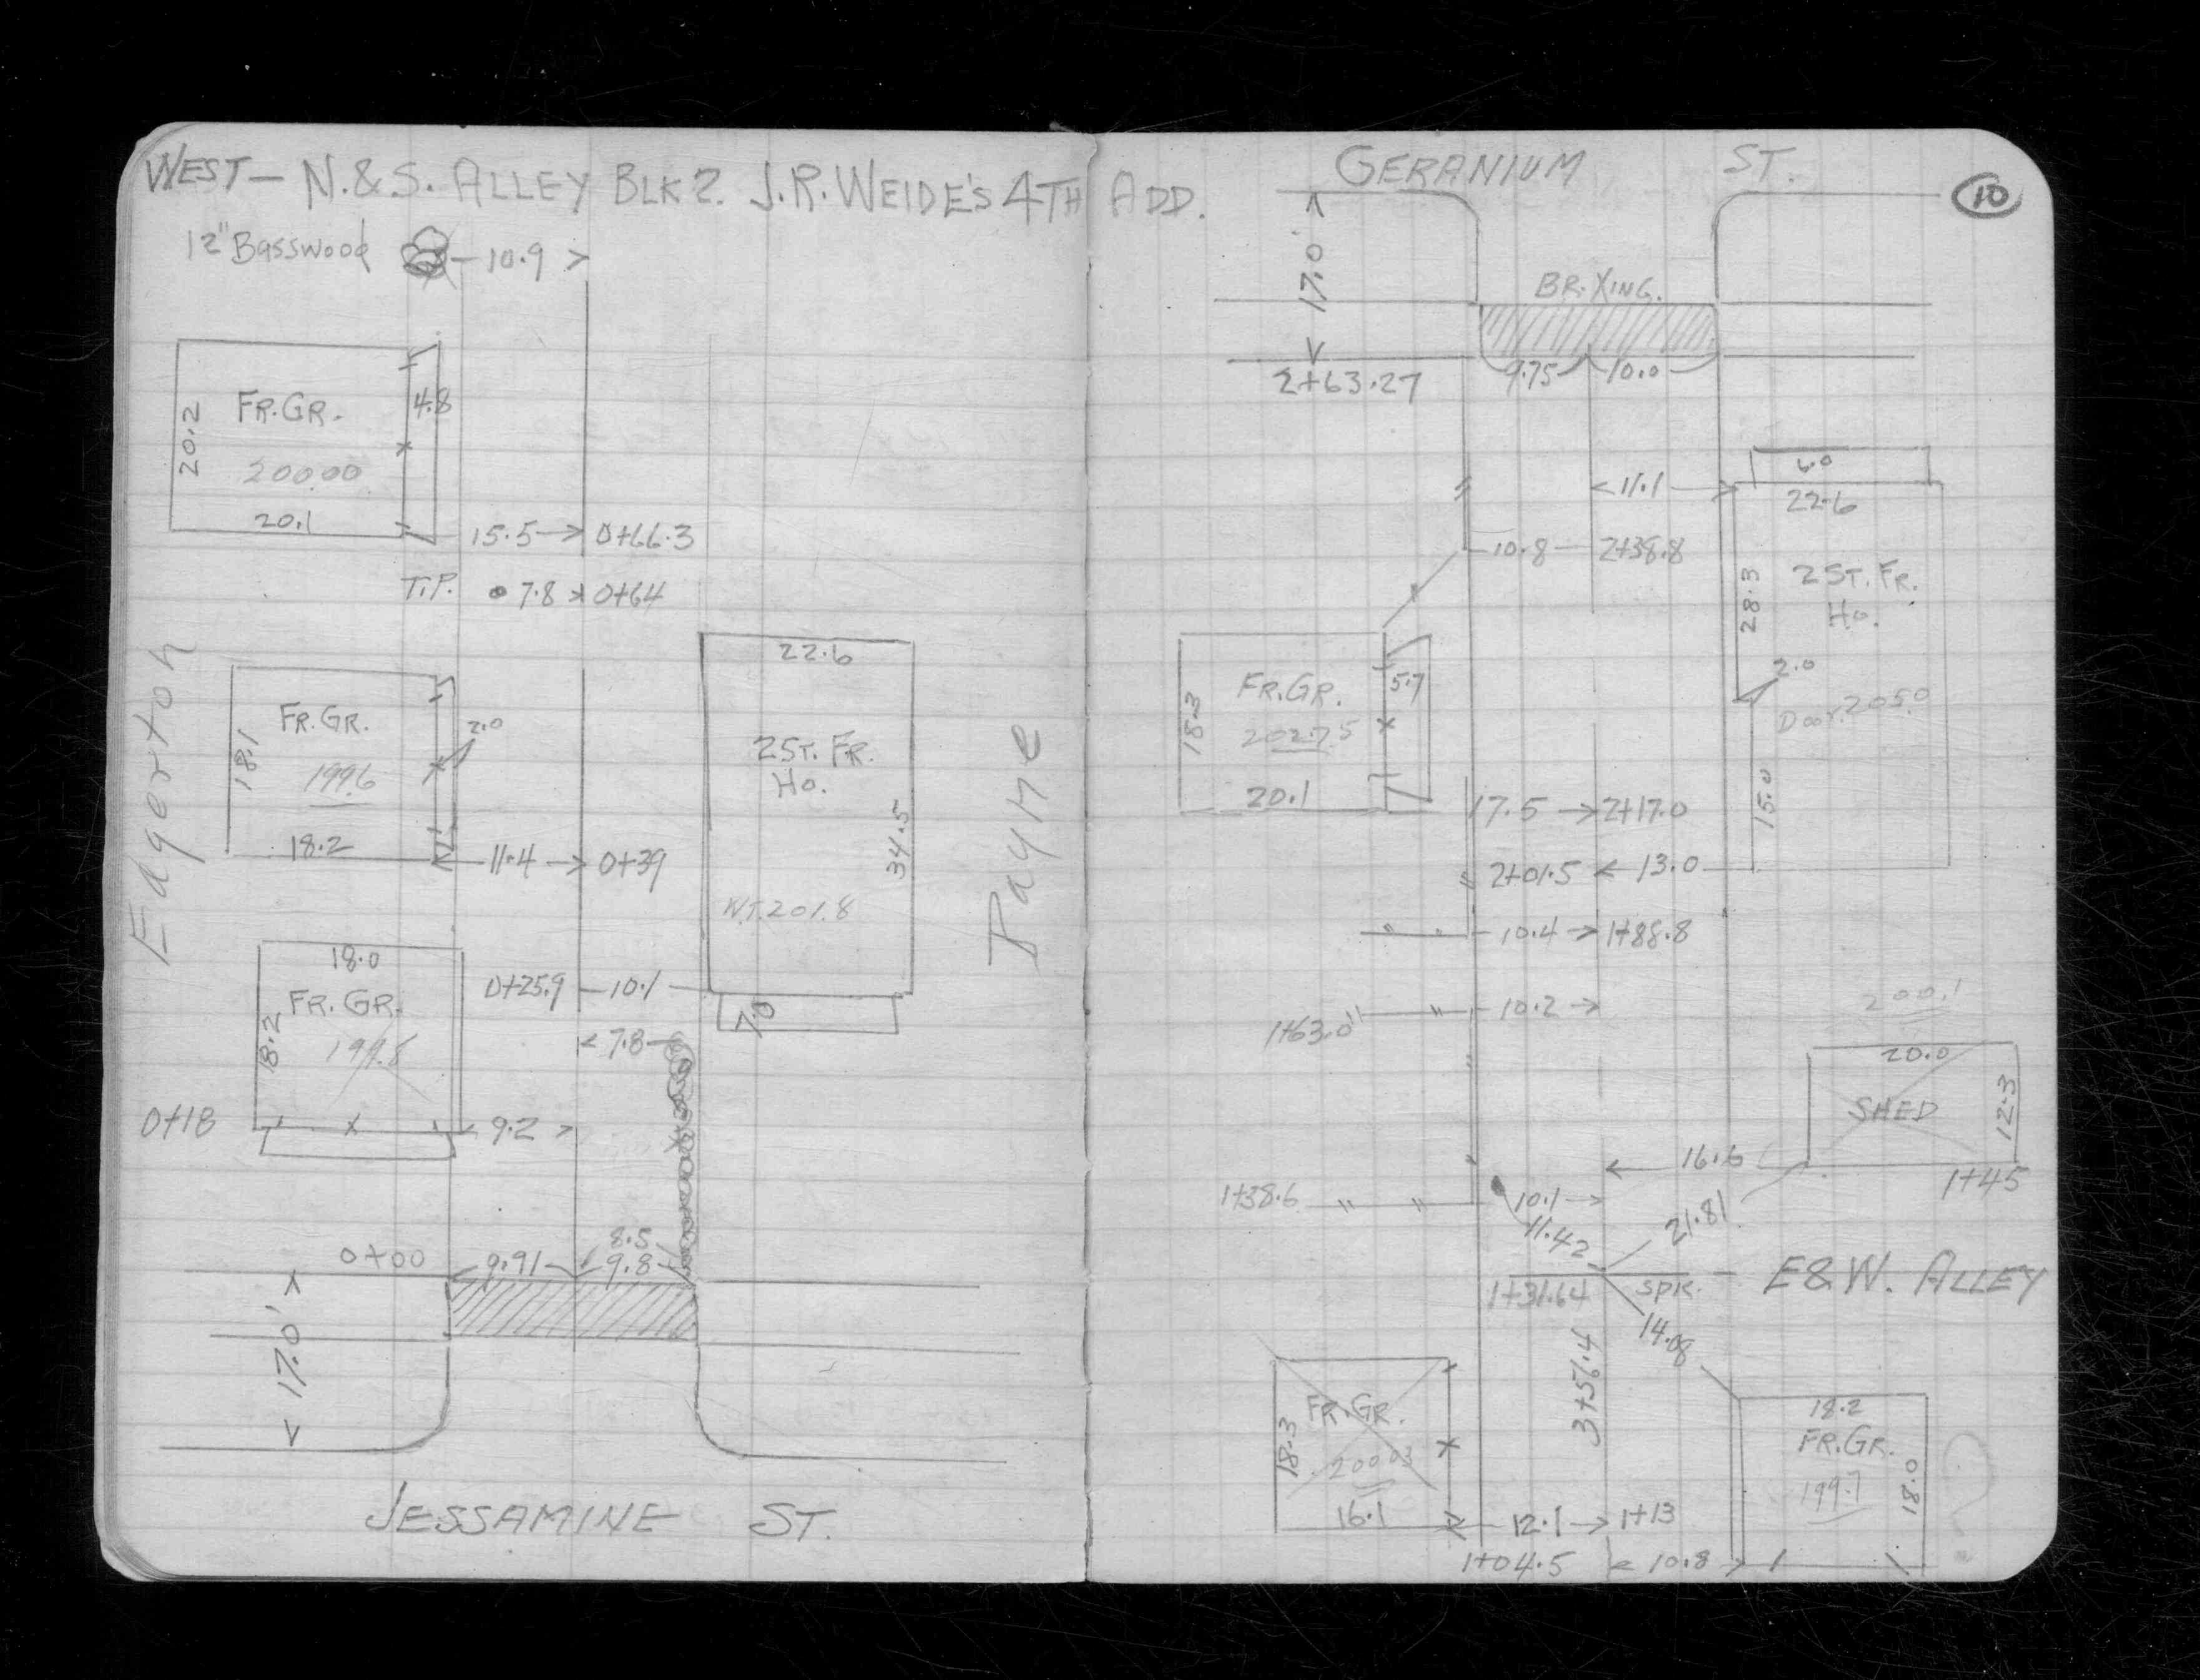 WEST - N. & S. ALLEY BLK 2. J.R. WEIDE'S 4TH ADD.
12" Basswood 10.9
FR. GR.
4.8
20.2
200.00
20.1
15.5 0+66.3
T.P. 7.8 0+64
Edgerton
FR. GR.
2.0
18.1
199.6
18.2
11.4 0+39
22.6
2 ST. FR.
HO.
34.5
W.T. 201.8
Payne
18.0
FR. GR.
18.2
199.8
0+25.9 10.1
7.0
7.8
0+18
9.2
0+00
8.5
9.91 9.8
17.0'
JESSAMINE ST.
GERANIUM ST.
10
17.0'
BR. XING.
9.75 10.0
2+63.27
6.0
11.1
22.6
10.8 2+38.8
28.3
2 ST. FR.
HO.
2.0
Door 205.0
15.0
FR. GR.
5.7
18.3
202.75
20.1
17.5 2+17.0
2+01.5 13.0
10.4 1+88.8
1+63.0 10.2
200.1
20.0
SHED
12.3
16.6
1+45
1+38.6
10.1
11.42
21.81
1+31.64 SPK. E & W. ALLEY
14.08
3+56.4
FR. GR.
18.3
200.03
16.1
12.1 1+13
1+04.5 10.8
18.2
FR. GR.
199.7
18.0